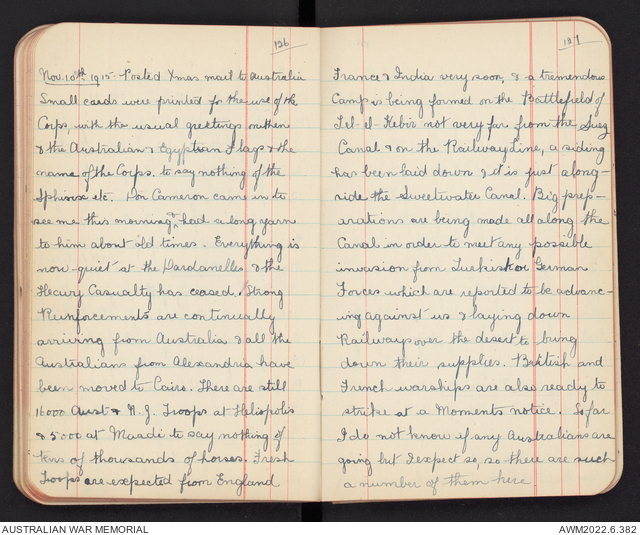 126
Nov. 10th 1915 Posted Xmas mail to Australia
Small cards were printed for the use of the
Corps, with the usual greetings on them
& the Australian & Egyptian Flags & the
name of the Corps. to say nothing of the
Sphinx etc. Cameron came in to
see me this morning & had a long yarn
to him about old times. Everything is
now quiet at the Dardanelles & the
Heavy Casualty has ceased, Strong
Reinforcements are continually
arriving from Australia & all the
Australians from Alexandria have
been moved to Cairo. There are still
16000 Aust & N.Z. Troops at Heliopolis
& 5000 at Maadi to say nothing of
tens of thousands of horses. Fresh
Troops are expected from England
127
France & India very soon, & a tremendous
Camp is being formed on the Battlefield of
Tel-el-Kebir not very far from the Suez
Canal & on the Railway Line, a siding
has been laid down & it is just along-
side the Sweetwater Canal. Big prep-
arations are being made all along the
Canal in order to meet any possible
invasion from Turkish or German
Forces which are reported to be advanc-
ing against us & laying down
Railways over the desert to bring
down their supplies. British and
French warships are also ready to
strike at a Moments notice. So far
I do not know if any Australians are
going but I expect so, so there are such
a number of them here
AUSTRALIAN WAR MEMORIAL
AWM2022.6.382